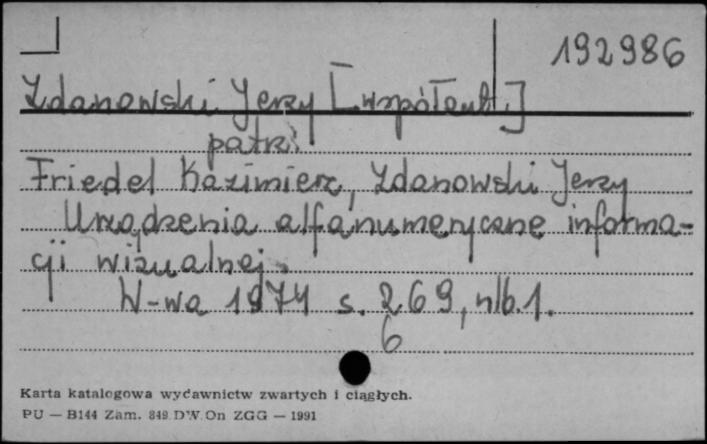 192986
Zdanowski Jerzy [współaut.]
patrz:
Friedel Kazimierz, Zdanowski Jerzy
Urządzenia alfanumeryczne informa-
cji wizualnej.
W-wa 1974 s. 269, nlb. 1.
6
Karta katalogowa wydawnictw zwartych i ciągłych.
PU — B144 Zam. 849 DW.On ZGG — 1991